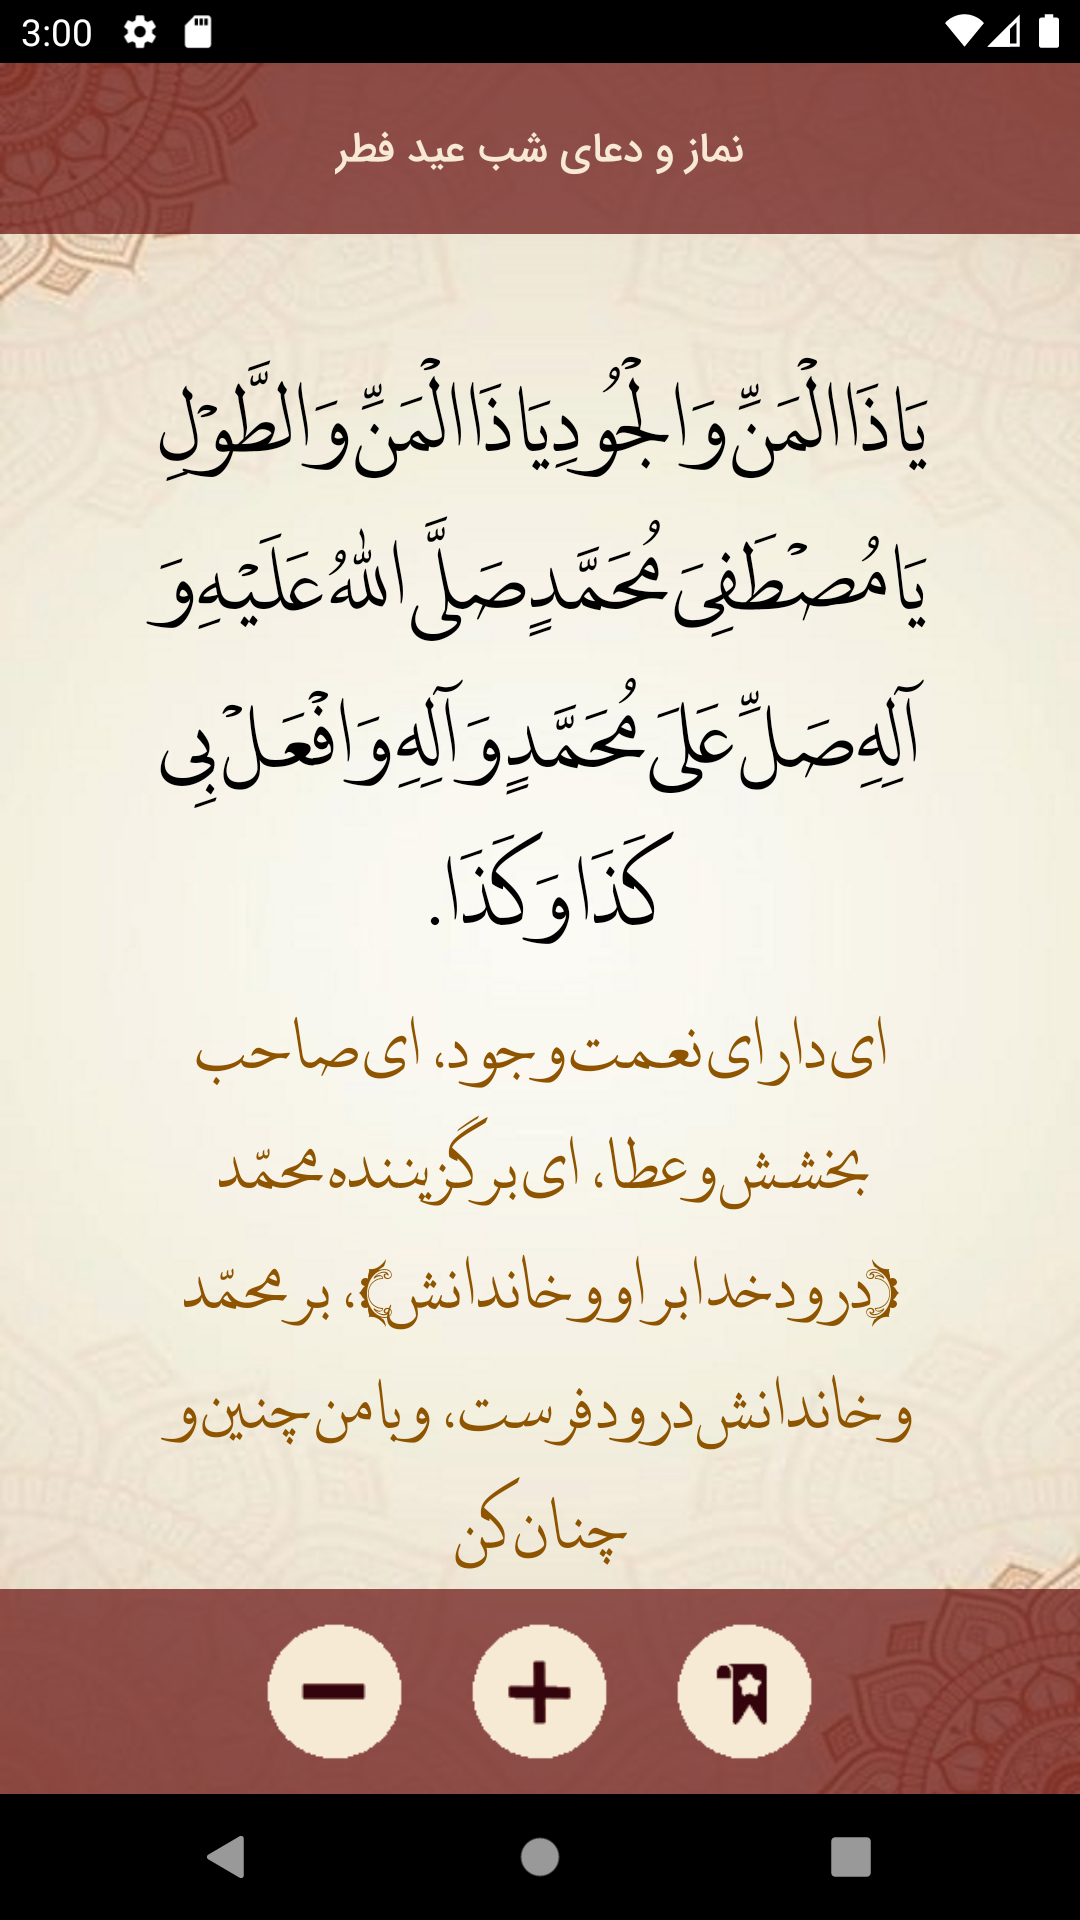 3:00
نماز و دعای شب عید فطر
يَا ذَا الْمَنِّ وَ الْجُودِ يَا ذَا الْمَنِّ وَ الطَّوْلِ
يَا مُصْطَفِيَ مُحَمَّدٍ صَلَّى اللهُ عَلَيْهِ وَ
آلِهِ صَلِّ عَلَى مُحَمَّدٍ وَ آلِهِ وَ افْعَلْ بِي
كَذَا وَ كَذَا.
ای دارای نعمت و جود، ای صاحب
بخشش و عطا، ای برگزیننده محمّد
﴿درود خدا بر او و خاندانش﴾، بر محمّد
و خاندانش درود فرست، و با من چنین و
چنان کن